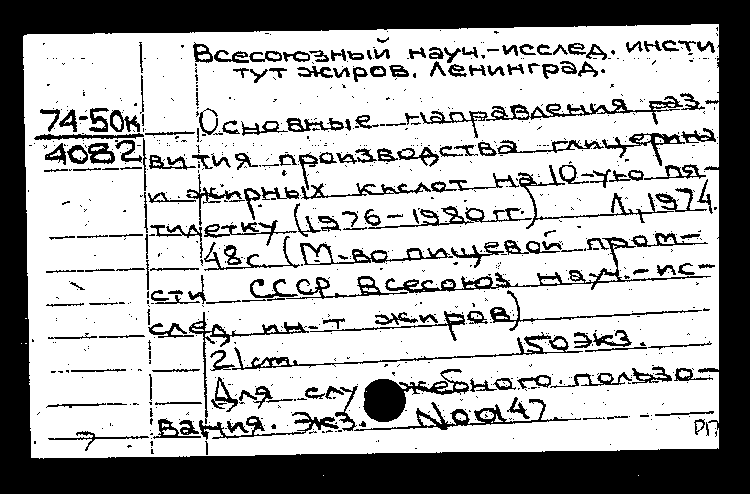 Всесоюзный науч.-исслед. инсти
тут жиров. Ленинград.
74-50к
4082
Основные направления раз-
вития производства глицерина
и жирных кислот на 10-ую пя-
тилетку (1976-1980 гг.) Л., 1974.
48с. (М-во пищевой пром-
сти СССР. Всесоюз. науч.-ис-
след. ин-т жиров)
21 cm. 150 экз.
Для служебного пользо-
вания. Экз.
РП